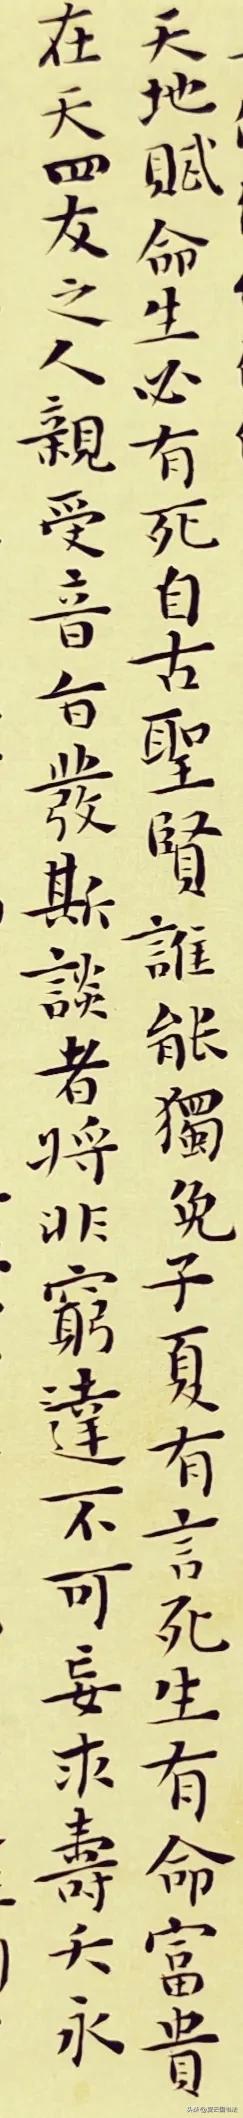 天地賦命生必有死自古聖賢誰能獨免子夏有言死生有命富貴
在天四友之人親受音旨發斯談者將非窮達不可妄求壽夭永